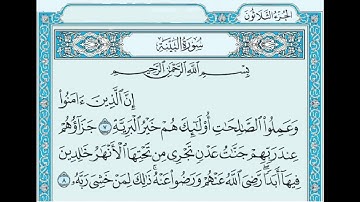 الجُزْءُ الثَّلَاثُونَ
سُورَةُ البَيِّنَةِ
بِسْمِ اللَّهِ الرَّحْمَٰنِ الرَّحِيمِ
إِنَّ الَّذِينَ ءَامَنُوا
وَعَمِلُوا الصَّالِحَاتِ أُولَٰئِكَ هُمْ خَيْرُ الْبَرِيَّةِ ٧ جَزَاؤُهُمْ
عِندَ رَبِّهِمْ جَنَّاتُ عَدْنٍ تَجْرِي مِن تَحْتِهَا الْأَنْهَارُ خَالِدِينَ
فِيهَا أَبَدًا رَّضِيَ اللَّهُ عَنْهُمْ وَرَضُوا عَنْهُ ذَٰلِكَ لِمَنْ خَشِيَ رَبَّهُ ٨